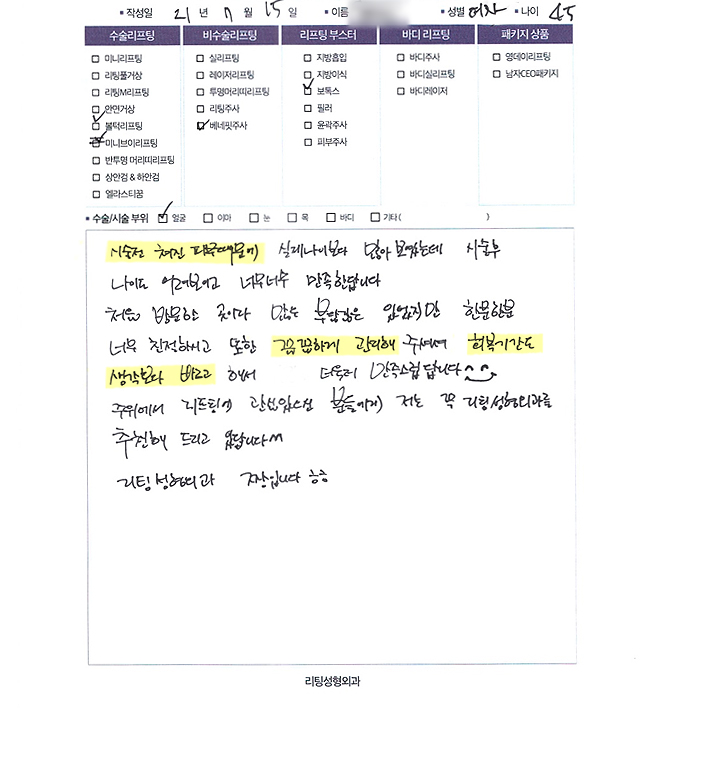 ▪ 작성일 21 년 7 월 15 일 ▪ 이름 ▪ 성별 여자 ▪ 나이 45
수술리프팅 비수술리프팅 리프팅 부스터 바디 리프팅 패키지 상품
미니리프팅 실리프팅 지방흡입 바디주사 영데이리프팅
리팅풀거상 레이저리프팅 지방이식 바디실리프팅 남자CEO패키지
리팅M리프팅 투명머리띠리프팅 보톡스 바디레이저
안면거상 리팅주사 필러
볼턱리프팅 베네핏주사 윤곽주사
미니브이리프팅 피부주사
반투명 머리띠리프팅
상안검 & 하안검
엘라스티꿈
▪ 수술/시술 부위 얼굴 이마 눈 목 바디 기타 ( )
시술전 쳐진 피부때문에 실제나이보다 많아 보였는데 시술후
나이도 어려보이고 너무너무 만족한답니다
처음 방문하는 곳이라 많은 부담감은 있었지만 한분한분
너무 친절하시고 또한 꼼꼼하게 관리해 주셔서 회복기간도
생각보다 빠르고 해서 더욱더 만족스럽답니다
주위에서 리프팅에 관심있으신 분들에게 저는 꼭 리팅성형외과를
추천해 드리고 있답니다^^
리팅성형외과 짱입니다 ㅎㅎ
리팅성형외과